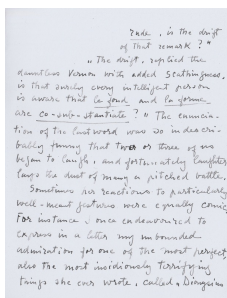 rude, is the drift
of that remark?"
"The drift, replied the
dauntless Vernon with added scathingness,
is that surely every intelligent person
is aware that le fond and la forme
are co-sub-stantiate?" The enuncia-
tion of the last word was so indescri-
bably funny that two or three of us
began to laugh, and fortunately laughter
lays the dust of many a pitched battle.
Sometimes her reactions to particularly
well-meant gestures were equally comic
For instance, I once endeavoured to
express in a letter my unbounded
admiration for one of the most perfect
also the most insidiously terrifying
things she ever wrote, called, Dionysius